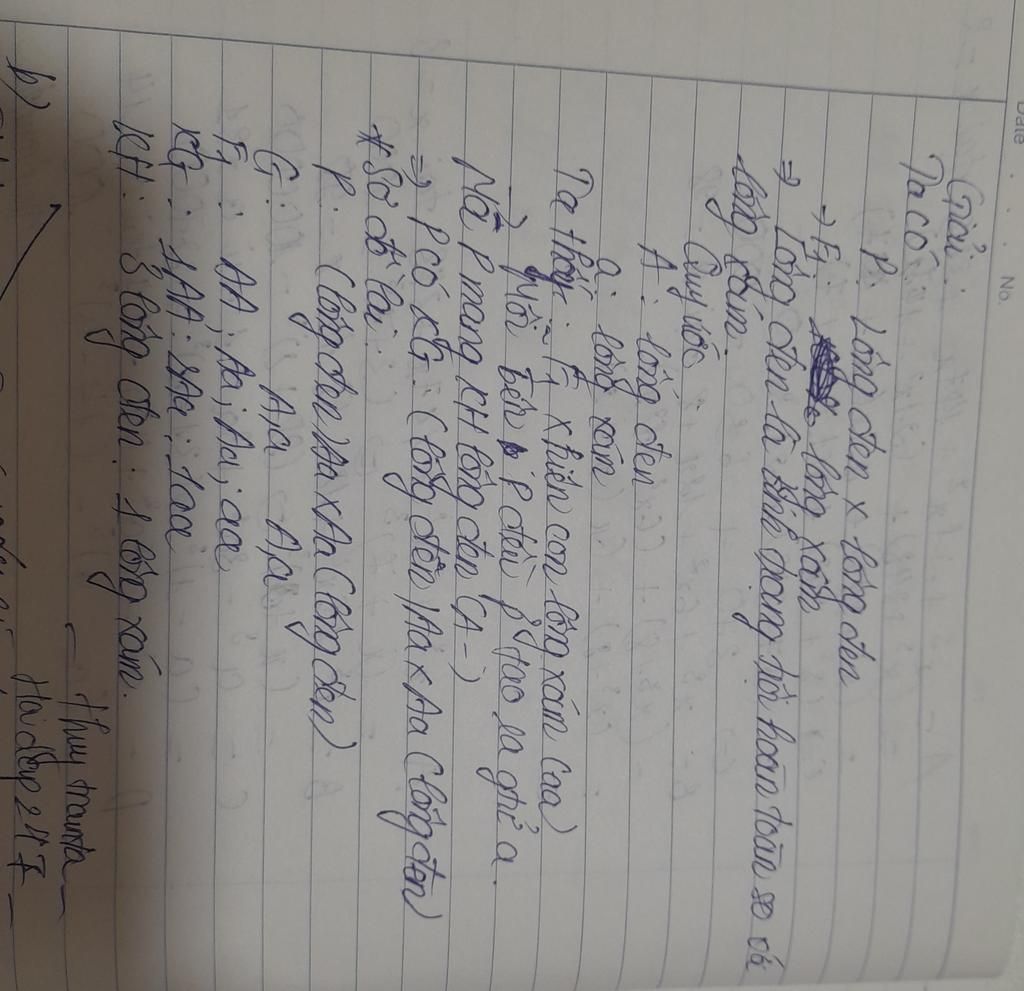 Date
No.
Giải:
Ta có:
P: Lông đen x lông đen
→ F1: lông xám
⇒ Lông đen là tính trạng trội hoàn toàn so với
lông xám.
Quy ước
A: lông đen
a: lông xám
Ta thấy: F1 x hiện con lông xám (aa)
→ Mỗi bên P đều phải tạo ra gtử a.
Mà P mang KH lông đen (A-)
⇒ P có KG: (lông đen) Aa x Aa (lông đen)
* Sơ đồ lai:
P: (lông đen) Aa x Aa (lông đen)
G: A,a A,a
F1: AA; Aa; Aa; aa
KG: 1AA: 2Aa: 1aa
KH: 3 lông đen: 1 lông xám.
Hỏi đáp 247
b)